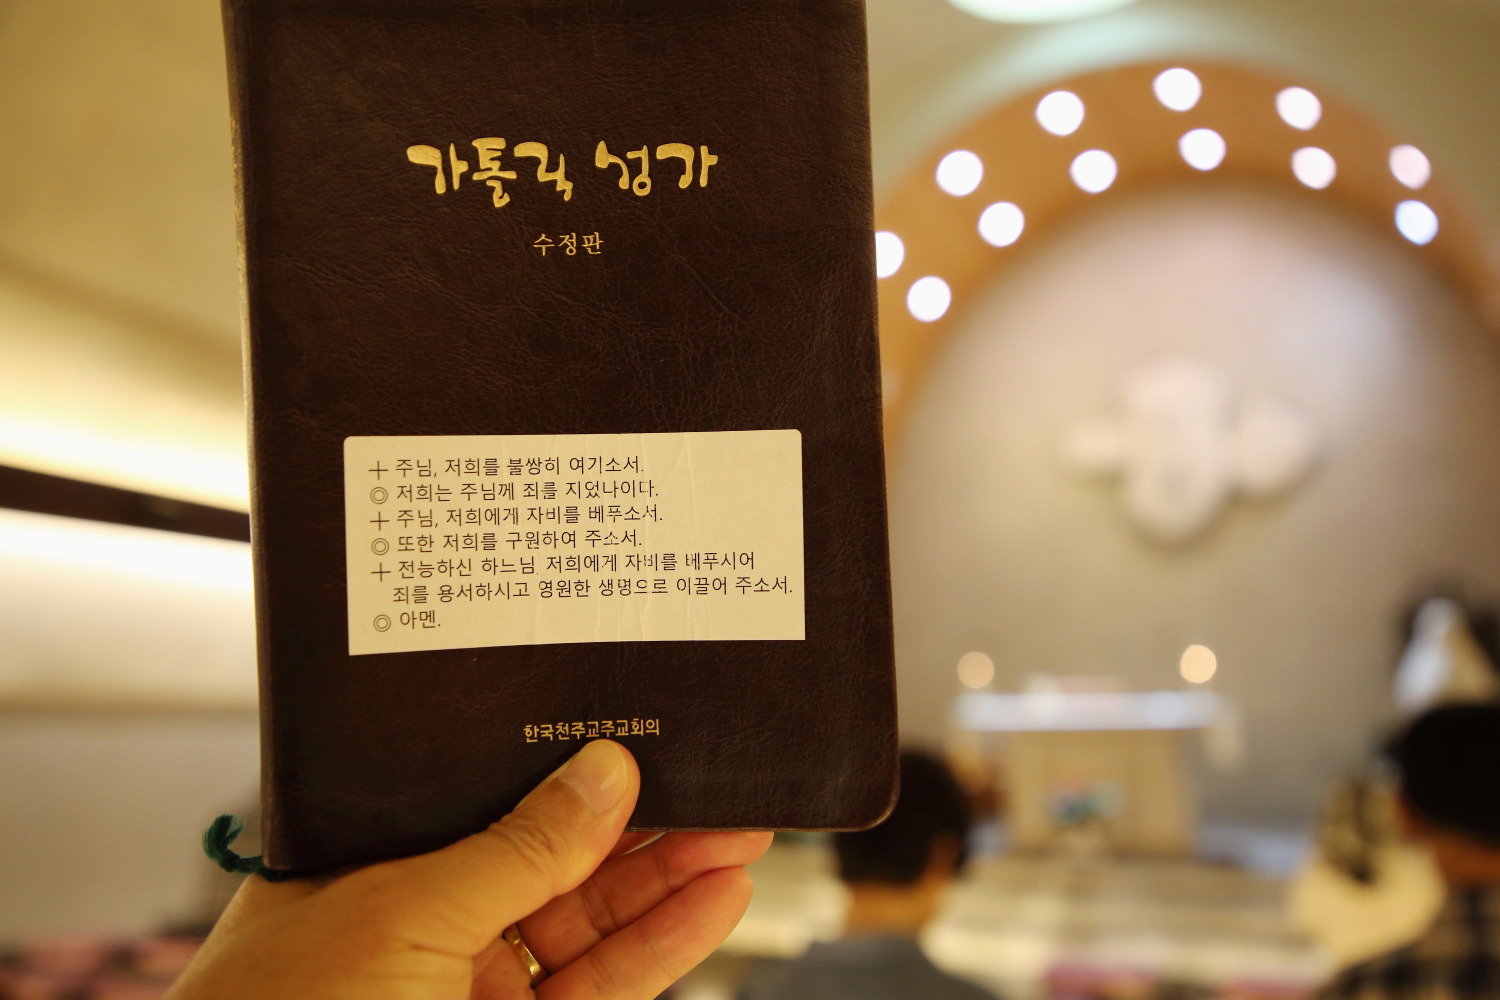 가톨릭 성가
수정판
+ 주님, 저희를 불쌍히 여기소서.
◎ 저희는 주님께 죄를 지었나이다.
+ 주님, 저희에게 자비를 베푸소서.
◎ 또한 저희를 구원하여 주소서.
+ 전능하신 하느님, 저희에게 자비를 베푸시어
죄를 용서하시고 영원한 생명으로 이끌어 주소서.
◎ 아멘.
한국천주교주교회의